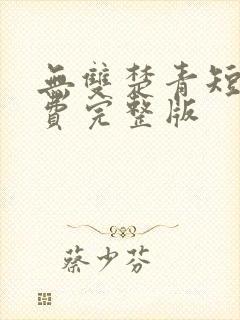 無雙楚青短
費完整版
蔡少芬